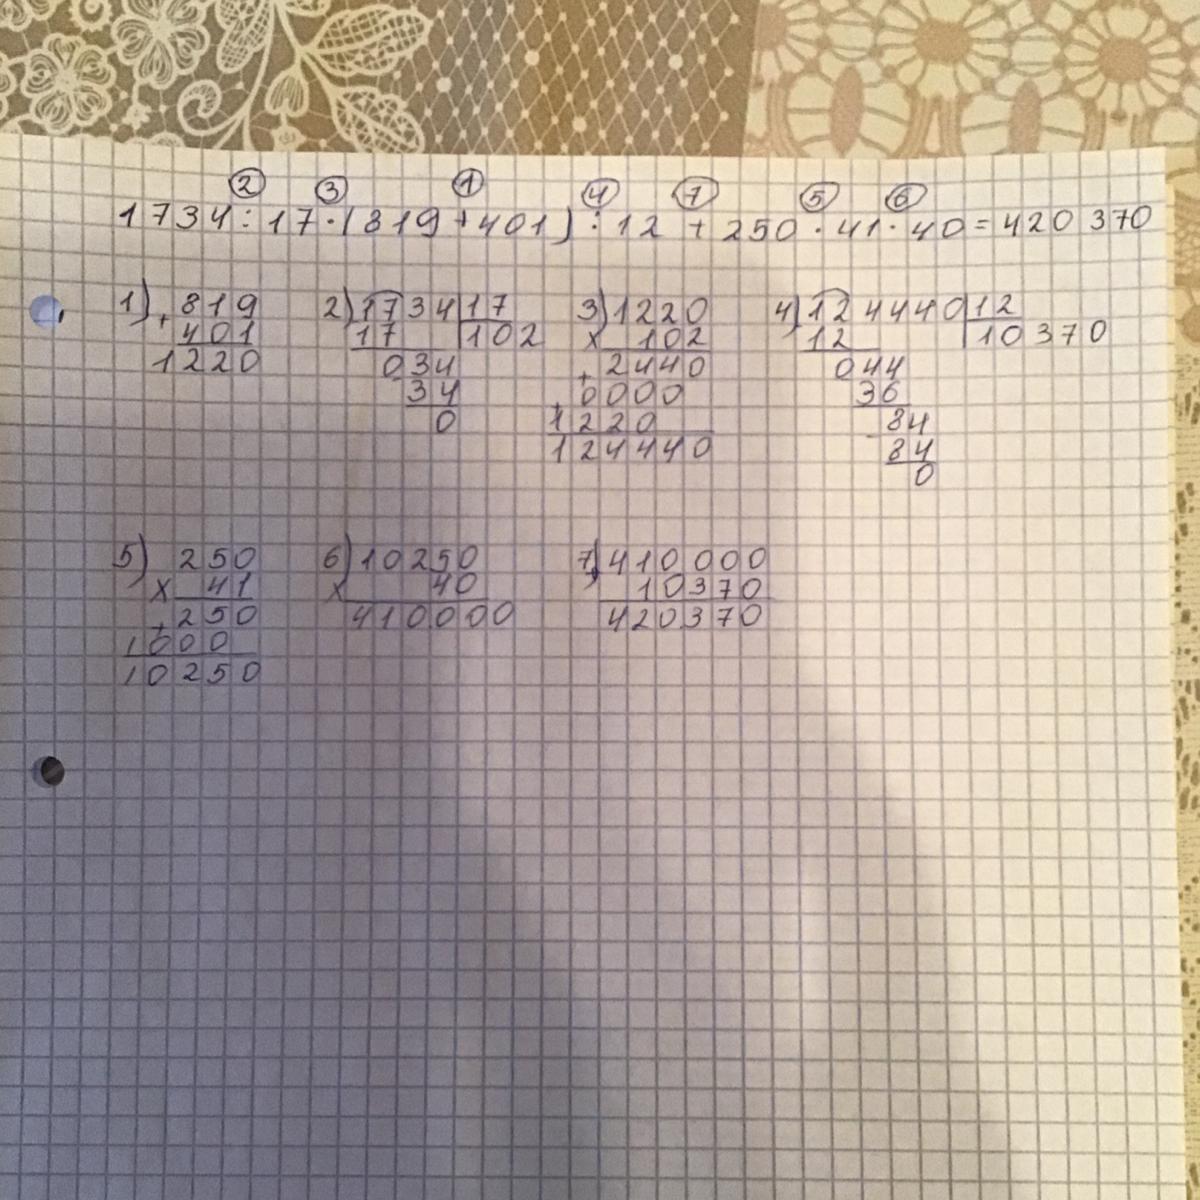 ② ③ ① ④ ⑦ ⑤ ⑥
1734 : 17 · (819 + 401) : 12 + 250 · 41 · 40 = 420 370
1) + 819
401
1220
2) 1734 | 17
17 | 102
034
34
0
3) 1220
x 102
+ 2440
+ 0000
1220
124440
4) 124440 | 12
12 | 10370
044
36
84
84
0
5) 250
x 41
+ 250
1000
10250
6) 10250
x 40
410000
7) 410000
+ 10370
420370